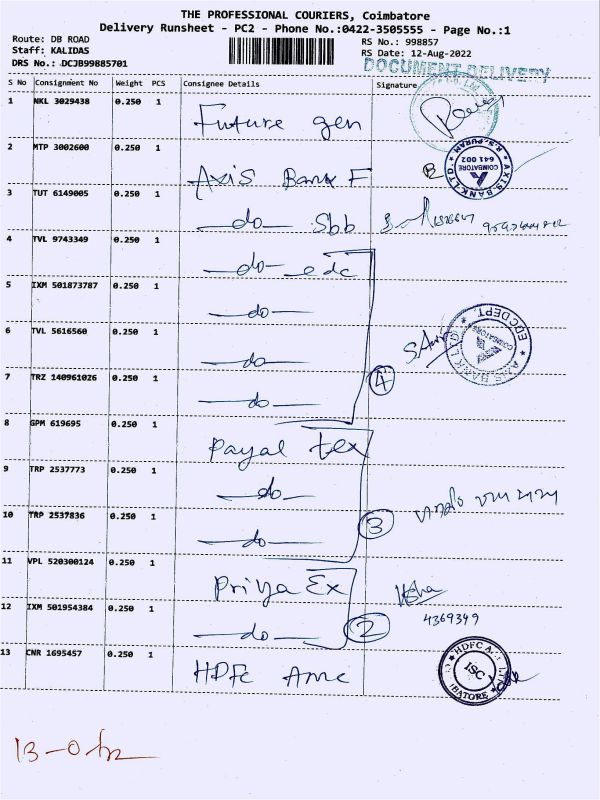 THE PROFESSIONAL COURIERS, Coimbatore
Delivery Runsheet - PC2 - Phone No.:0422-3505555 - Page No.:1
Route: DB ROAD
Staff: KALIDAS
DRS No.: DCJB99885701
RS No.: 998857
RS Date: 12-Aug-2022
DOCUMENT DELIVERY
S No Consignment No Weight PCS Consignee Details Signature
1 NKL 3029438 0.250 1 Future gen
2 MTP 3002600 0.250 1 Axis Bank F
AXIS BANK LTD. R.S. PURAM COIMBATORE 641 002
3 TUT 6149005 0.250 1 —do— Sbb
4 TVL 9743349 0.250 1 —do— edc
5 IXM 501873787 0.250 1 —do—
6 TVL 5616560 0.250 1 —do—
AXIS BANK LTD. EDC DEPT. COIMBATORE
7 TRZ 140961026 0.250 1 —do— 4
8 GPM 619695 0.250 1 Payal tex
9 TRP 2537773 0.250 1 —do—
10 TRP 2537836 0.250 1 —do— 3
11 VPL 520300124 0.250 1 Priya Ex
12 IXM 501954384 0.250 1 —do— 2 4369349
13 CNR 1695457 0.250 1 HDFC Amc
ISC